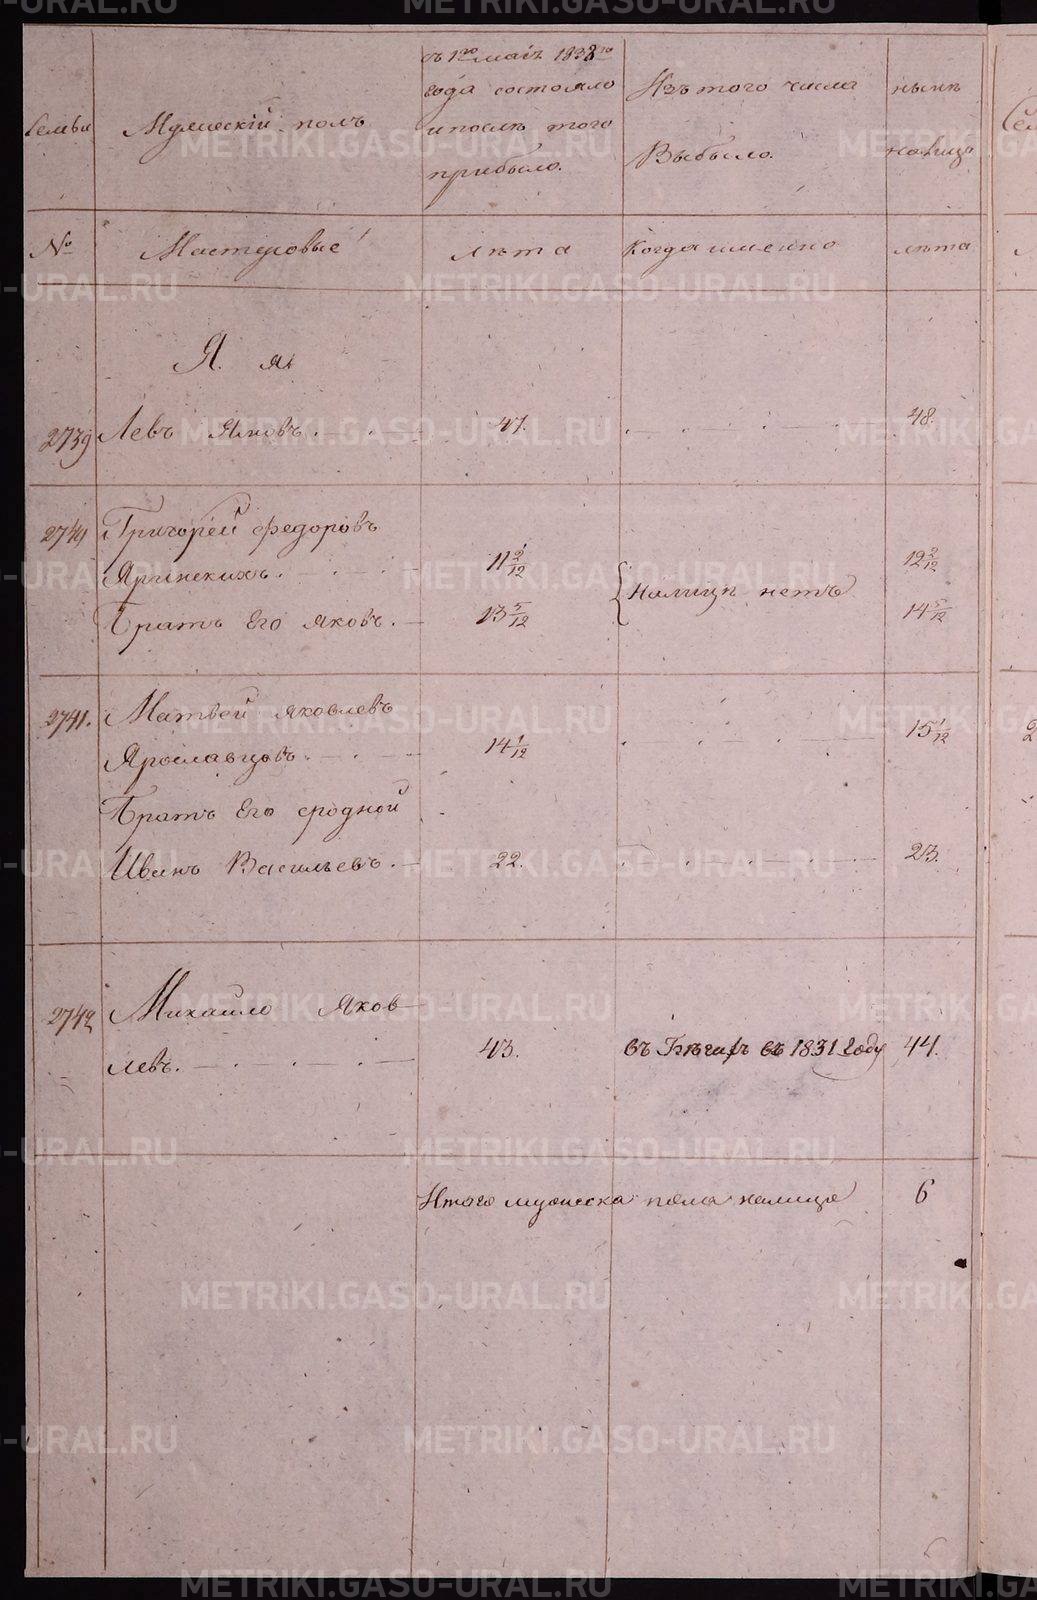 Семьи
Мужескій полъ
съ 1го маія 1838го
года состояло
и послѣ того
прибыло.
Изъ того числа
Выбыло.
нынѣ
налицо
№
Мастеровые
лѣта
Когда именно
лѣта
Я. я.
2739 Левъ Яковъ. 47. 48.
2740 Григорей Федоровъ
Яринскихъ. 11 2/12 12 2/12
Налицо нетъ
Братъ Его Яковъ. 13 5/12 14 5/12
2741. Матвей Яковлевъ
Ярославцовъ. 14 1/12 15 1/12
Братъ Его сродной
Иванъ Васильевъ. 22. 23.
2742 Михайло Яков
левъ. 43. въ Бѣгахъ съ 1831 Году 44.
Итого мужеска пола налицо 6
METRIKI.GASO-URAL.RU